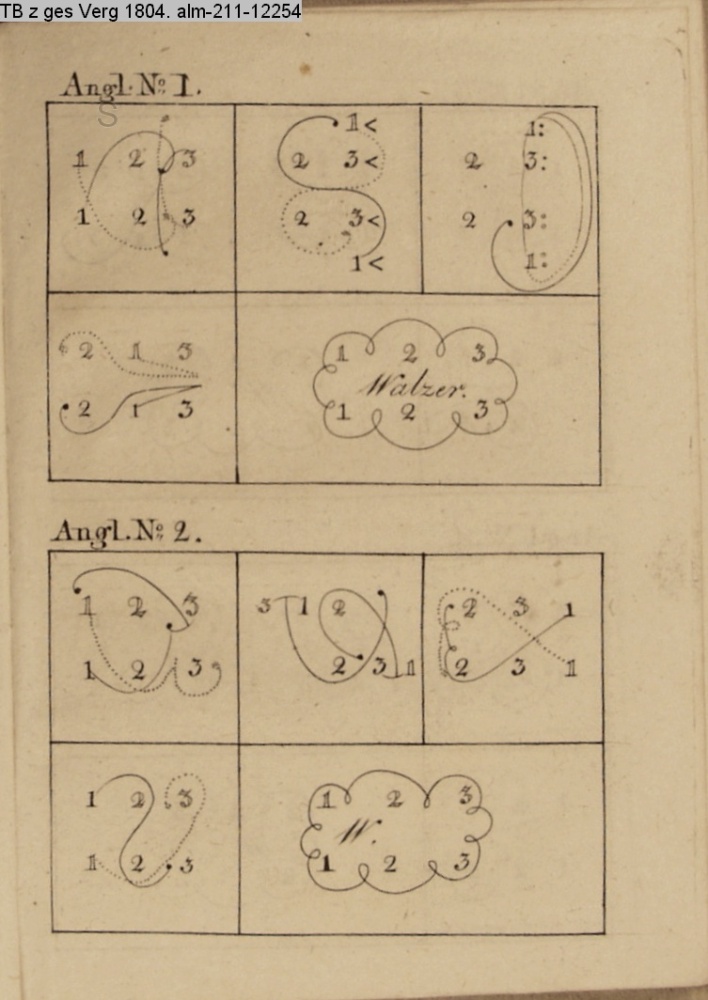 TB z ges Verg 1804. alm-211-12254
Angl. No. 1.
1 2 3
1 2 3
1<
2 3<
2 3<
1<
1:
2 3:
2 3:
1:
2 1 3
2 1 3
1 2 3
Walzer.
1 2 3
Angl. No. 2.
1 2 3
1 2 3
3 1 2
2 3 1
2 3 1
2 3 1
1 2 3
1 2 3
1 2 3
W.
1 2 3